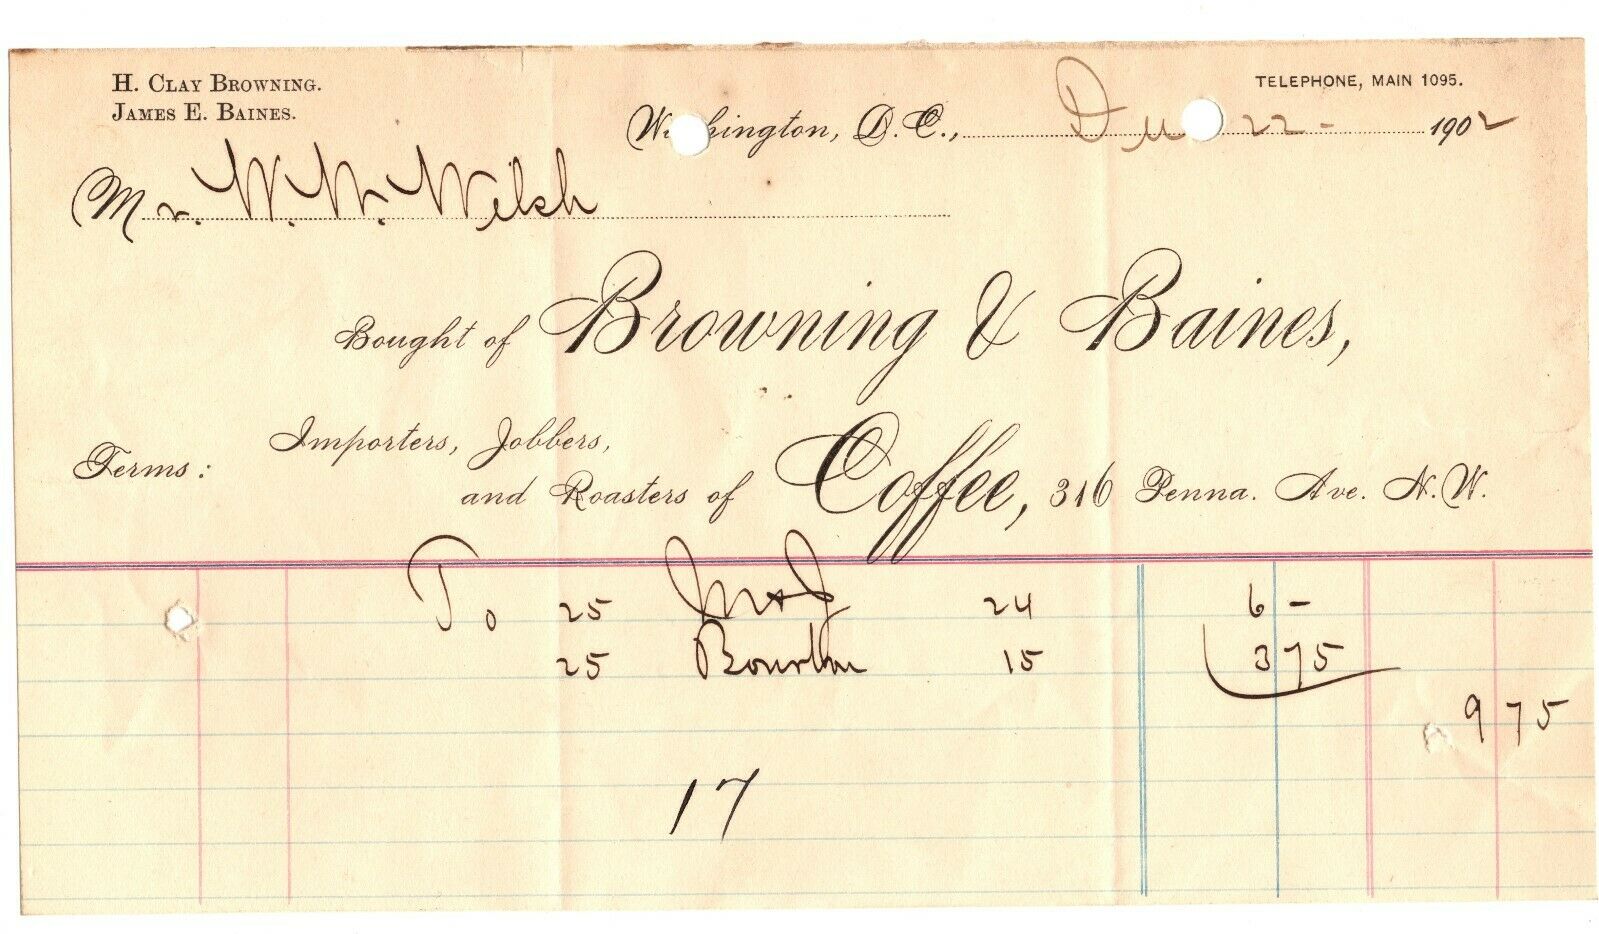 H. CLAY BROWNING.
JAMES E. BAINES.
TELEPHONE, MAIN 1095.
Washington, D. C., 22 - 1902
Mr. W. W. Welsh
Bought of Browning & Baines,
Terms:
Importers, Jobbers,
and Roasters of Coffee, 316 Penna. Ave. N. W.
To 25 M & J 24 6 -
25 Bourbon 15 3 75
9 75
17